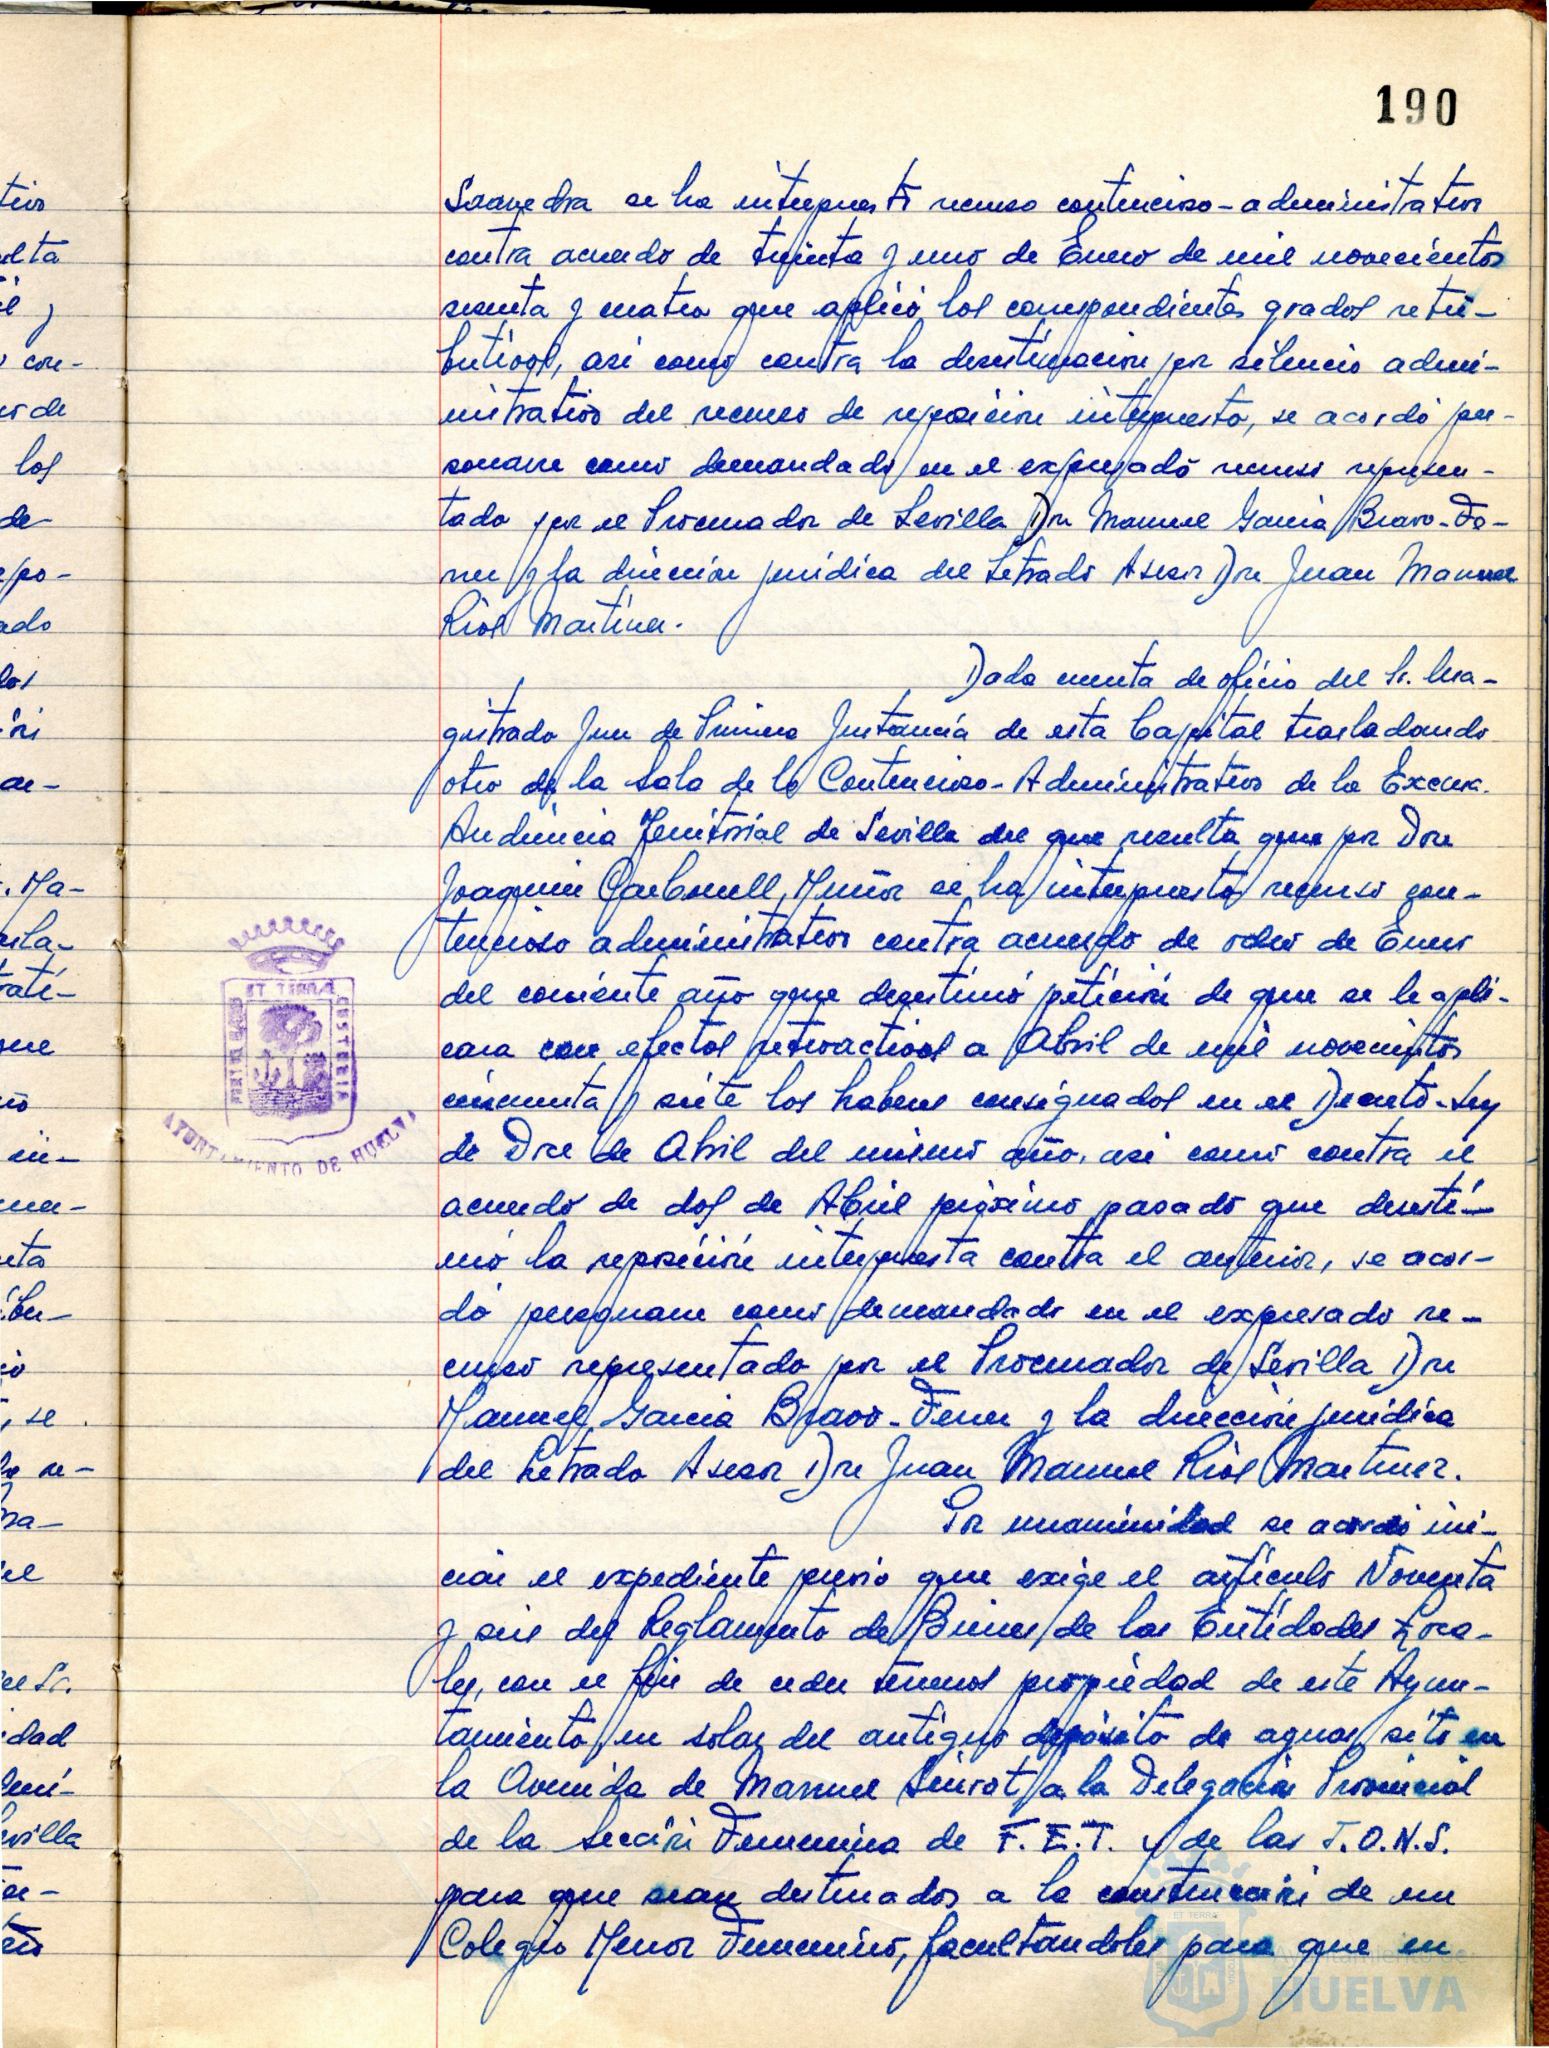 190
Saavedra se ha interpuesto recurso contencioso-administrativo
contra acuerdo de treinta y uno de Enero de mil novecientos
sesenta y cuatro que aplicó los correspondientes grados retri-
butivos, asi como contra la desestimacion por silencio admi-
nistrativo del recurso de reposicion interpuesto, se acordó per-
sonarse como demandado en el expresado recurso represen-
tado por el Procurador de Sevilla Don Manuel Garcia Bravo-Fe-
rrer y la direccion juridica del Letrado Asesor Don Juan Manuel
Rios Martinez.
Dada cuenta de oficio del Sr. Ma-
gistrado Juez de Primera Instancia de esta Capital trasladando
otro de la Sala de lo Contencioso-Administrativo de la Excma.
Audiencia Territorial de Sevilla del que resulta que por Don
Joaquin Carbonell Muñoz se ha interpuesto recurso con-
tencioso administrativo contra acuerdo de ocho de Enero
del corriente año que desestimó petición de que se le apli-
cara con efectos retroactivos a Abril de mil novecientos
cincuenta y siete los haberes consignados en el Decreto-Ley
de Doce de Abril del mismo año, asi como contra el
acuerdo de dos de Abril próximo pasado que desesti-
mó la reposición interpuesta contra el anterior, se acor-
dó personarse como demandado en el expresado re-
curso representado por el Procurador de Sevilla Don
Manuel Garcia Bravo-Ferrer y la direccion juridica
del Letrado Asesor Don Juan Manuel Rios Martinez.
Por unanimidad se acordó ini-
ciar el expediente previo que exige el artículo Noventa
y seis del Reglamento de Bienes de las Entidades Loca-
les, con el fin de ceder terrenos propiedad de este Ayun-
tamiento en solar del antiguo depósito de aguas sito en
la Avenida de Manuel Siurot a la Delegación Provincial
de la Sección Femenina de F.E.T. y de las J.O.N.S.
para que sean destinados a la construcción de un
Colegio Menor Femenino, facultandoles para que en
ET TERRA
CUSTODIA
PORTUS MARIS
AYUNTAMIENTO DE HUELVA
Ayuntamiento de
HUELVA